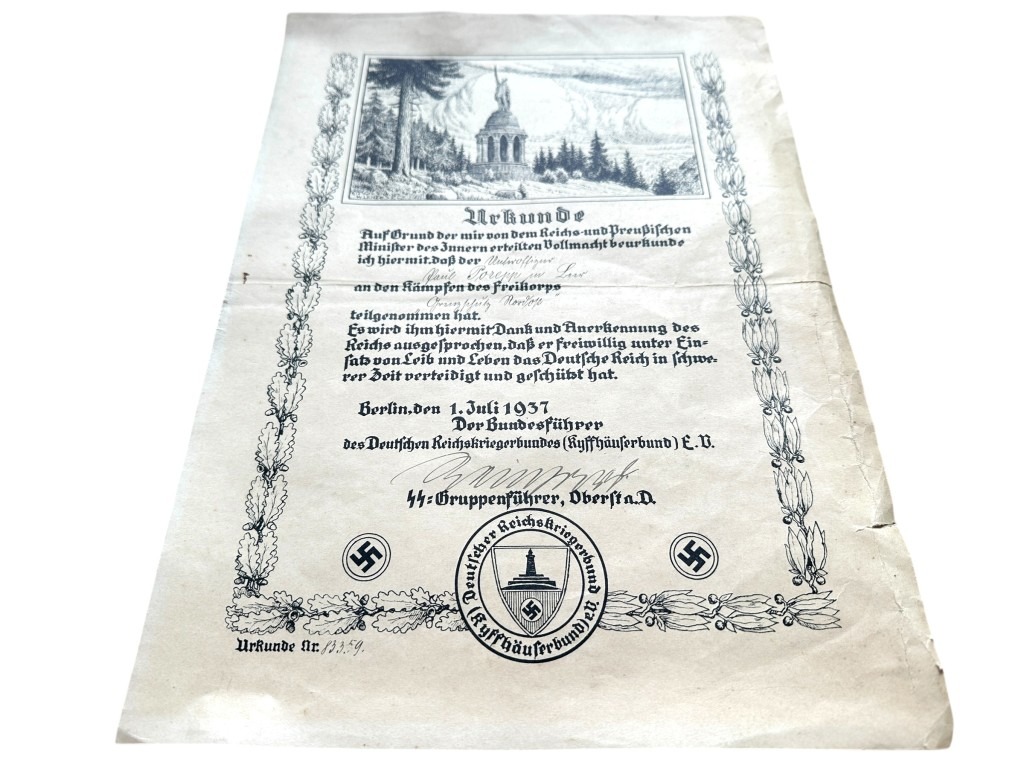 Urkunde
Auf Grund der mir von dem Reichs- und Preußischen
Minister des Innern erteilten Vollmacht beurkunde
ich hiermit, daß der Unteroffizier
Paul Porepp in Leer
an den Kämpfen des Freikorps
Grenzschutz Nordost
teilgenommen hat.
Es wird ihm hiermit Dank und Anerkennung des
Reichs ausgesprochen, daß er freiwillig unter Ein-
satz von Leib und Leben das Deutsche Reich in schwe-
rer Zeit verteidigt und geschützt hat.
Berlin, den 1. Juli 1937
Der Bundesführer
des Deutschen Reichskriegerbundes (Kyffhäuserbund) E. V.
SS-Gruppenführer, Oberst a. D.
Deutscher Reichskriegerbund
(Kyffhäuserbund) e.V.
Urkunde Nr. 13359.